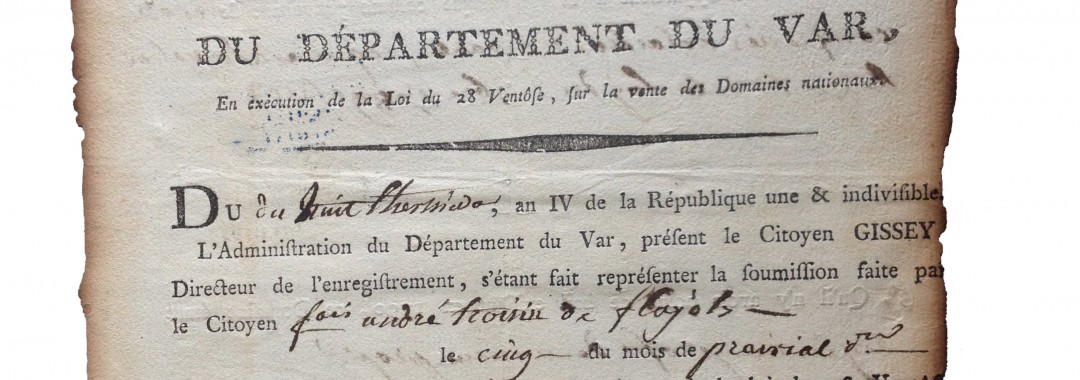 DU DÉPARTEMENT DU VAR,
En éxécution de la Loi du 28 Ventôſe, ſur la vente des Domaines nationaux.
DU du huit thermidor, an IV de la République une & indiviſible.
L'Adminiſtration du Département du Var, préſent le Citoyen GISSEY
Directeur de l'enregiſtrement, s'étant fait repréſenter la ſoumiſſion faite par
le Citoyen fois andré de
le cinq du mois de prairial dr